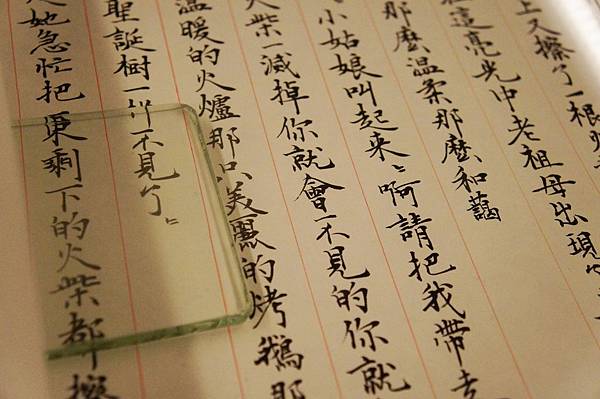 上又擦了一根火
在這亮光中老祖母出現
那麼溫柔那麼和藹
小姑娘叫起來啊請把我帶走
火柴一滅掉你就會不見的你就
溫暖的火爐那只美麗的烤鵝那
聖誕樹一樣不見了
她急忙把
剩下的火柴都擦